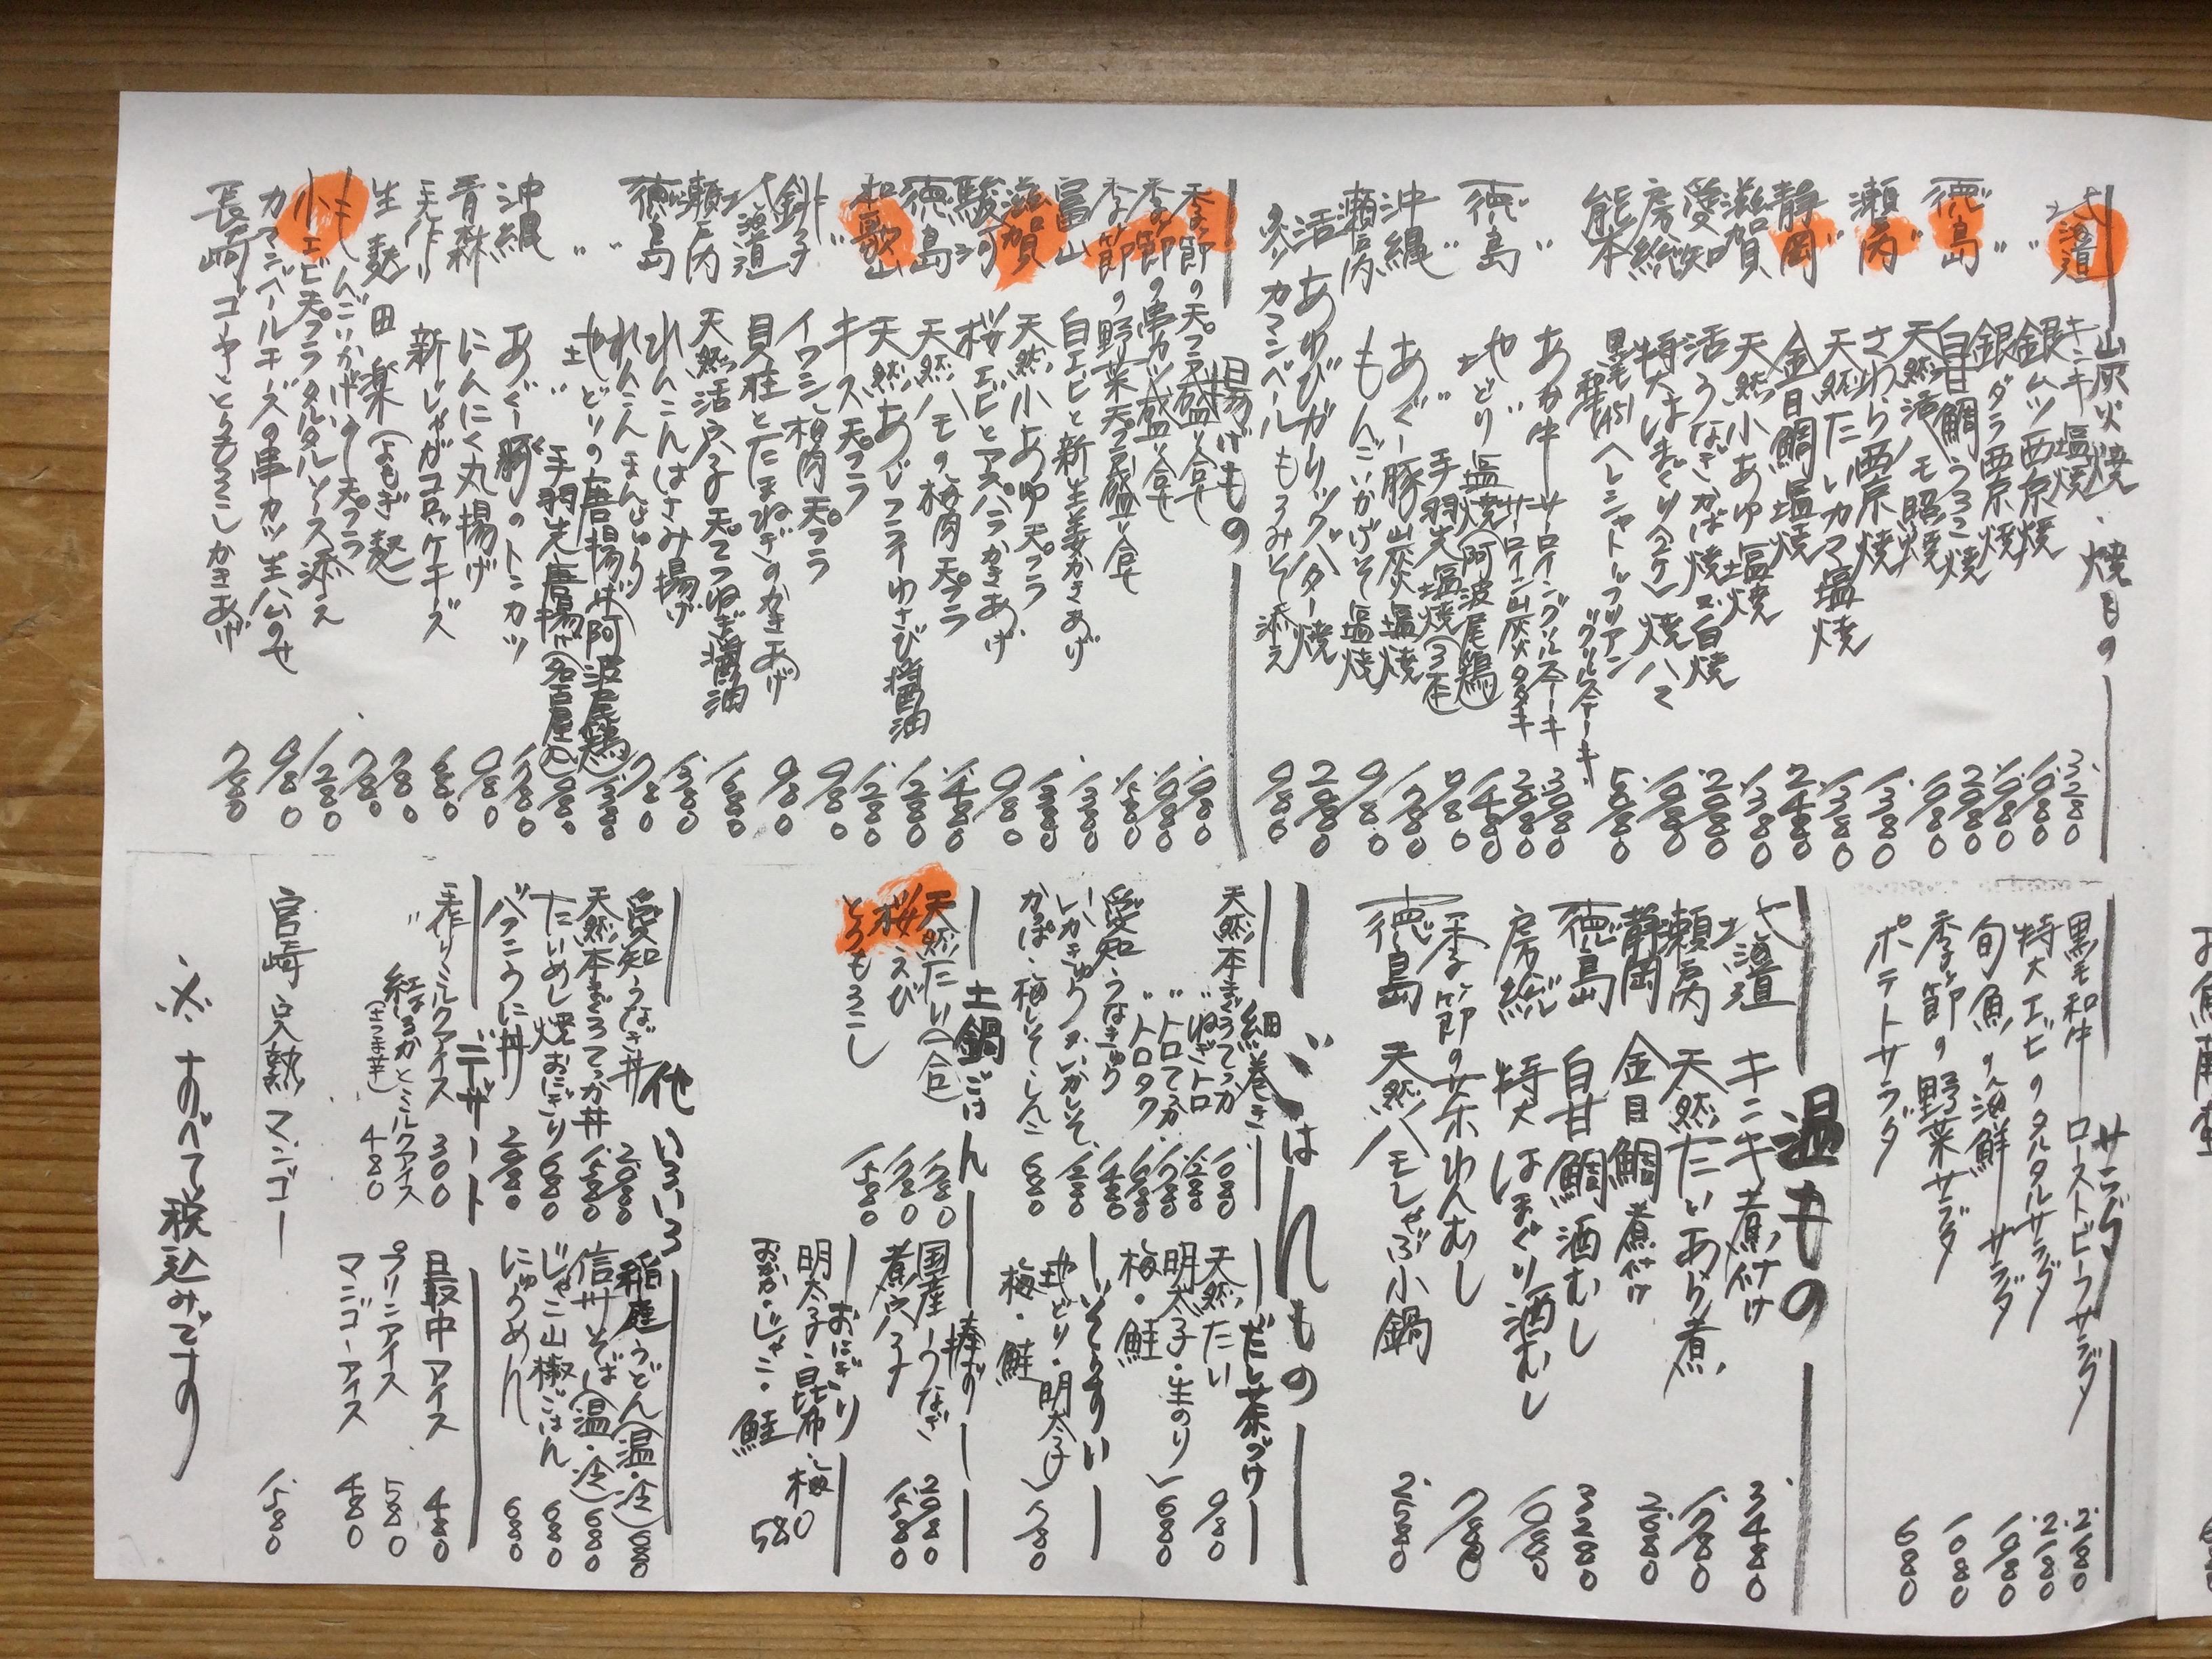 山炭火焼・焼もの
北海道 キンキ塩焼 3280
〃 銀ムツ西京焼 1,080
銀ダラ西京焼 1,080
徳島 白甘鯛うろこ焼 2080
〃 天然活ハモ照焼 1,080
瀬戸内 さわら西京焼 1380
〃 天然たいカマ塩焼 1380
静岡 金目鯛塩焼 2480
滋賀 天然小あゆ塩焼 1,380
愛知 活うなぎかば焼又は白焼
房総 特大はまぐり(2ケ)焼ハマ 1,080
熊本 黒毛
あか牛 サーロイングリルステーキ 3080
〃 サーロイン山炭火タタキ 2080
徳島 地どり塩焼(阿波尾鶏) 1,480
〃 手羽先塩焼(3本) 980
沖縄 あぐー豚山炭火塩焼 1,280
瀬戸内 もんごいかげそ塩焼 980
活あわびガーリックバター焼 2080
カマンベールもろみそ添え 980
揚げもの
季節の天プラ盛り合せ 1,080
季節の串カツ盛り合せ 1,080
季節の野菜天プラ盛り合せ
富山 白エビと新生姜かきあげ 1,380
滋賀 天然小あゆ天プラ
駿河 桜エビとアスパラかきあげ 980
徳島 天然ハモの梅肉天プラ 1,480
和歌山 天然あじフライわさび醤油 1,280
〃 キス天プラ
銚子 イワシ梅肉天プラ 980
北海道 貝柱とたまねぎのかきあげ 980
瀬戸内 天然活穴子天プラねぎ醤油 1,680
徳島 れんこんはさみ揚げ
れんこんまんじゅう 780
〃 地どりの唐揚げ(阿波尾鶏) 1,380
〃 手羽先唐揚げ(名古屋) 980
沖縄 あぐー豚のトンカツ
青森 にんにく丸揚げ 980
手作り 新じゃがコロッケチーズ
生麩田楽(よもぎ麩) 780
もんごいかげその天プラ 780
小エビ天プラタルタルソース添え 1280
カマンベールチーズの串カツ生ハムのせ 980
長崎 ゴーヤととうもろこしかきあげ 780
サラダ
黒毛和牛ローストビーフサラダ 2,180
特大エビのタルタルサラダ 2,180
旬魚の海鮮サラダ 1,080
季節の野菜サラダ 1080
ポテトサラダ 680
温もの
北海道 キンキ煮付け 3480
瀬戸内 天然たいあら煮 1,780
静岡 金目鯛煮付け
徳島 白甘鯛酒むし 3280
房総 特大はまぐり酒むし 1,080
季節の茶わんむし 780
徳島 天然ハモしゃぶ小鍋 2,580
ごはんもの
細巻き
天然本まぐろてっか 1080
〃 ねぎトロ 1,280
〃 トロてっか 1,780
〃 トロタク
愛知 うなきゅう 1,480
いかきゅう・いかしそ 1,280
かっぱ・梅しそ・しんこ 680
だし茶づけ
天然たい 980
明太子・生のり
梅・鮭 680
いそぞうすい
地どり・明太子
梅・鮭 780
土鍋ごはん
天然たい(一合) 1,780
桜エビ 1,780
とうもろこし 1,580
棒ずし
国産うなぎ 2080
煮穴子 1,580
おにぎり
明太子・昆布・梅
おかか・じゃこ・鮭 580
他いろいろ
愛知うなぎ丼 2080
天然本まぐろてっか丼 1,580
たいめし焼おにぎり 680
バフンうに丼 2080
稲庭うどん(温・冷) 680
信州そば(温・冷) 680
じゃこ山椒ごはん 680
にゅうめん 680
デザート
手作りミルクアイス 300
〃 紅はるかとミルクアイス
(さつま芋) 480
最中アイス 480
プリンアイス 580
マンゴーアイス 480
宮崎 完熟マンゴー 1,580
※すべて税込みです